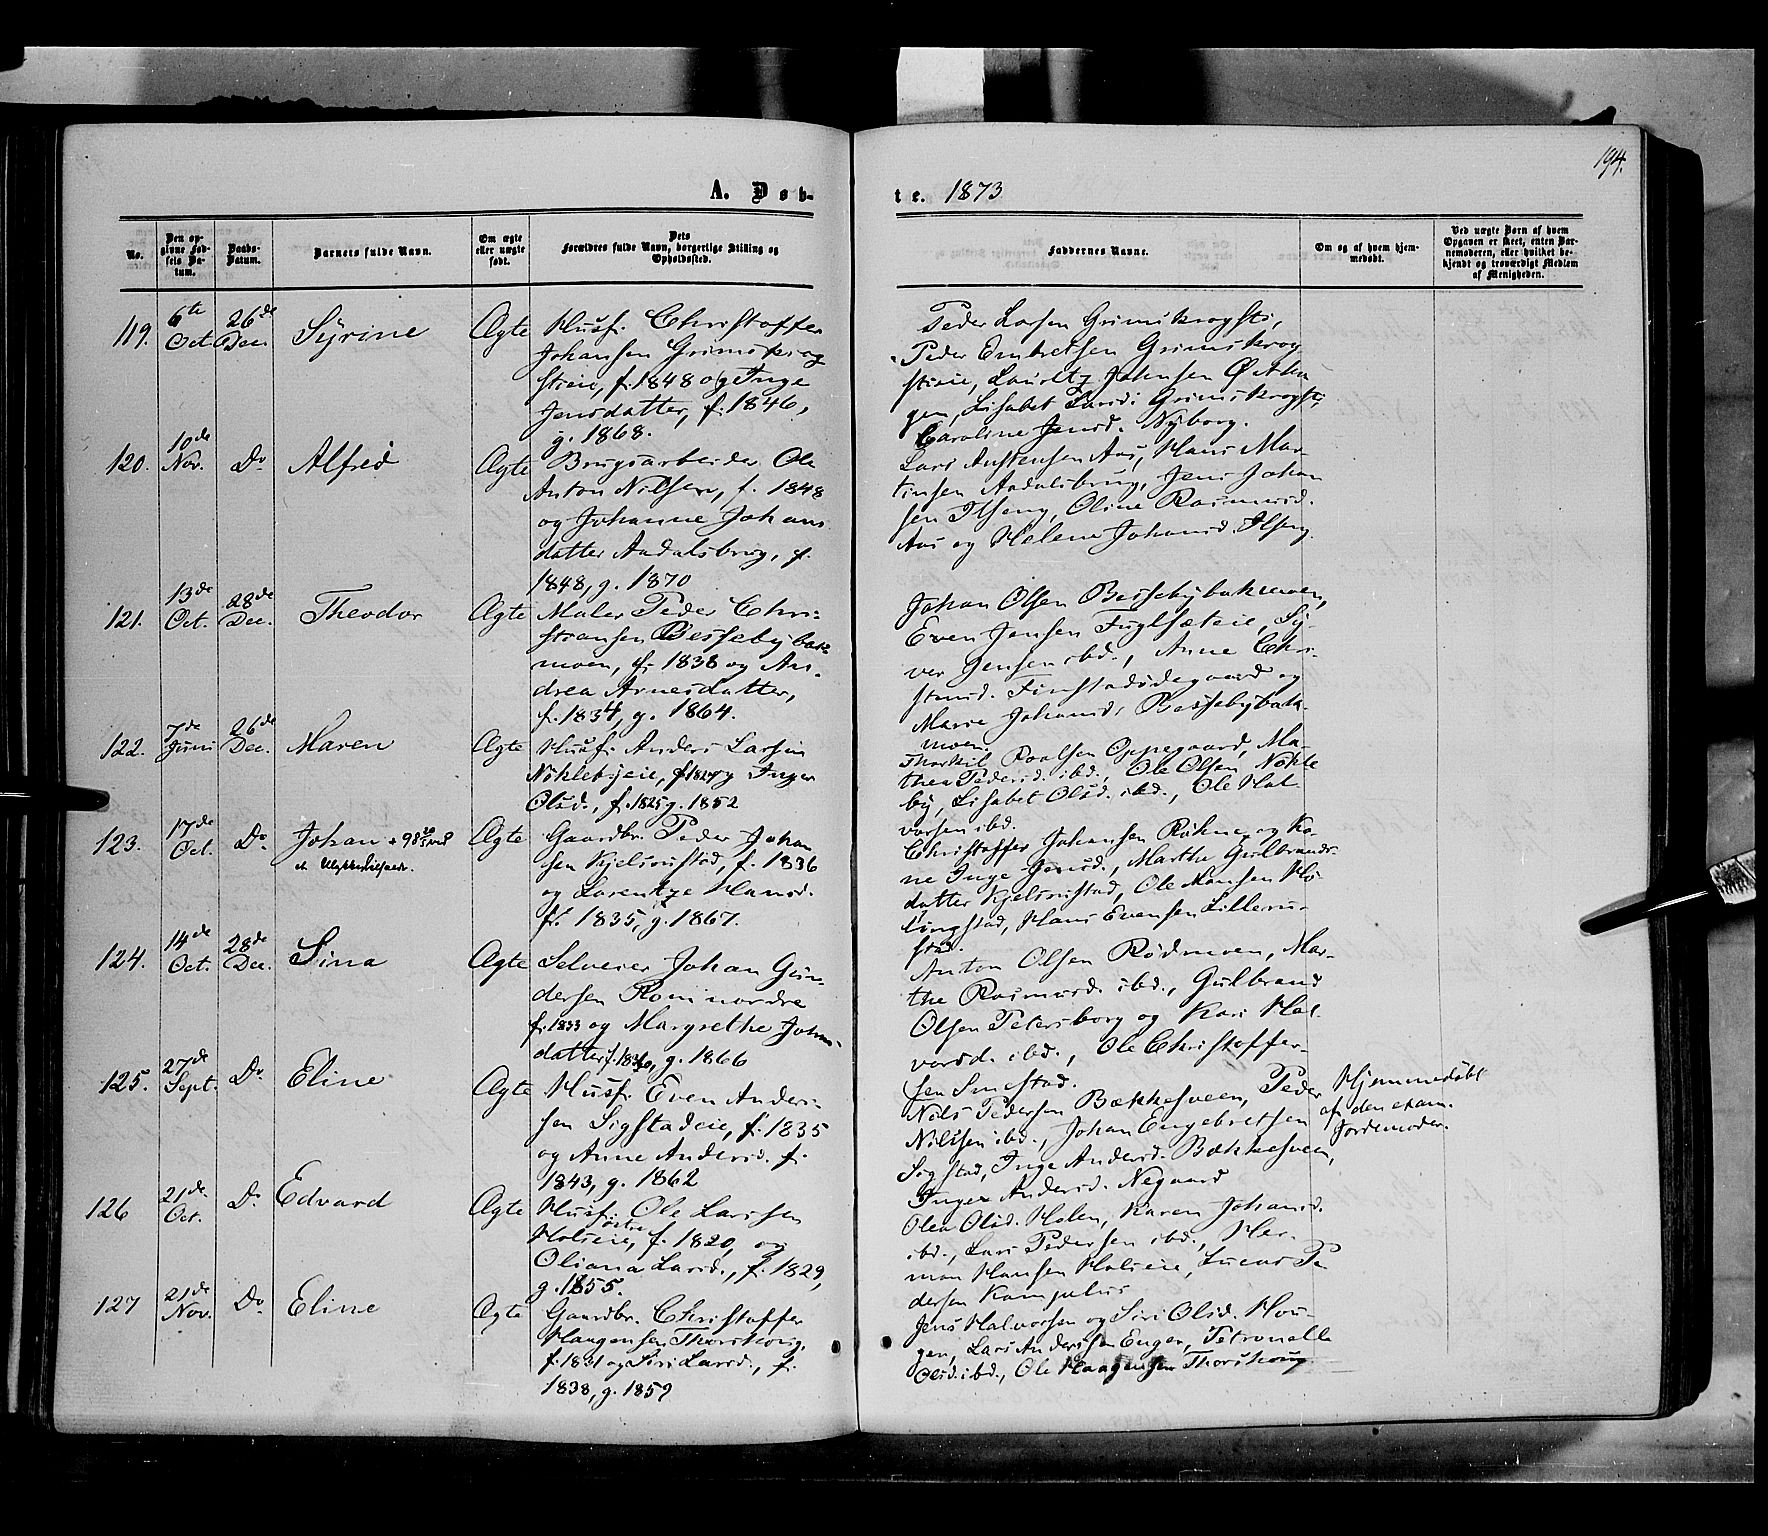 194.
A. Døb-
te. 1873
No.
Den op-
givne Fød-
sels Da-
tum.
Daabs-
Datum.
Barnets fulde Navn.
Om ægte
eller uægte
født.
Dets
Forældres fulde Navn, borgerlige Stilling og
Opholdssted.
Faddernes Navne.
Om og af hvem hjem-
medøbt.
Ved uægte Børn af hvem
Opgaven er skeet, enten Bar-
nemoderen, eller hvilket be-
kjendt og troværdigt Medlem
af Menigheden.
119.
6te
Oct
26de
Dec.
Syrine
Ægte
Husf. Christoffer
Johansen Grimskrog
steie, f. 1848 og Inge
Jensdatter, f. 1846,
g. 1868.
Peder Larsen Grimskrogst.,
Peder Embretsen Grimskrog
steie, Lauritz Johnsen
gen, Lisabet Larsd. Grimskrogst.
Caroline Jensd. Nyborg.
120.
10de
Nov.
Do
Alfred
Ægte
Brugsarbeider Ole
Anton Nilsen, f. 1848
og Johanne Johans
datter Aadalsbrug, f.
1848, g. 1870
Lars Austensen Aas, Hans Mar-
tinsen Aadalsbrug, Jens Johan
sen Ilseng, Oline Rasmusd.
Aas og Helene Johansd. Ilseng.
121.
13de
Oct.
28de
Dec.
Theodor
Ægte
Maler Peder Chri-
stiansen Bessebybak-
moen, f. 1838 og An-
drea Arnesdatter,
f. 1834, g. 1864.
Johan Olsen Bessebybakmoen,
Even Jensen Fuglsæteie, Sy-
ver Jensen ibd., Anne Chri-
stensd. Finstadødegaard og
Marie Johansd. Bessebybak-
moen.
122.
7de
Juni
26de
Dec.
Maren
Ægte
Husf. Anders Larsen
Nøklebyeie, f. 1827 og Inger
Olsd., f. 1825 g. 1852
Thorkil Roalsen Oppegaard, Ma-
thea Pedersd. ibd., Ole Olsen Nøkle
by, Lisabet Olsd. ibd., Ole Hal-
vorsen ibd.
123.
17de
Oct.
Do
Johan
Ægte
Gaardbr. Peder Johan
sen Kjelsrustad, f. 1836
og Lorentze Hansd.
f. 1835, g. 1867.
Christoffer Johansen Røhne og Ko-
ne Inge Jensd., Marthe Gulbrands-
datter Kjelsrustad, Ole Hansen
stad, Hans Evensen Lilleru-
stad.
124.
14de
Oct.
28de
Dec.
Sina
Ægte
Selveier Johan Gun-
dersen Rom nordre
f. 1833 og Margrethe Johns-
datter f. g. 1866
Anton Olsen Rødmoen, Mar-
the Rasmusd. ibd., Gulbrand
Olsen Petersborg og Kari Hal-
vorsd. ibd., Ole Christoffer-
sen Smestad.
125.
27de
Sept.
Do
Eline
Ægte
Husf. EvenAnder-
sen Sigstadeie, f. 1835
og Anne Andersd. f.
1843, g. 1862
Nils Pedersen Bækkesveen, Peder
Nilssen ibd., Johan Engebretsen
Sigstad, Inge Andersd. Bækkesveen,
Inger Andersd. Negaard
Hjemmedøbt
af den exam.
Jordemoder.
126
21de
Oct.
Do
Edvard
Ægte
Husf. Ole Larssen
østre
Holseie, f. 1820, og
Oliana Larsd., f. 1829,
g. 1855.
Olea Olsd. Holen, Karen Johansd.
ibd., Lars Pedersen ibd., Her-
man Hansen Holseie, Lucas Pe
dersen
127
21de
Nov.
Do
Eline
Ægte
Gaardbr. Christoffer
Haagensen Thorskoug,
f. 1831 og Siri Larsd., f.
1838, g. 1859
Jens Halvorsen og Siri Olsd. Hou-
gen, Lars Anderssen Enger, Petronelle
Olsd. ibd., Ole Haagensen Thorskoug